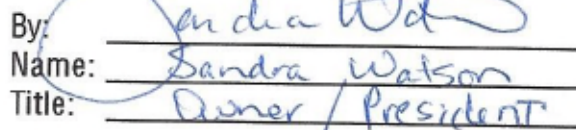 By: Sandra Wa
Name: Sandra Watson
Title: Owner / President